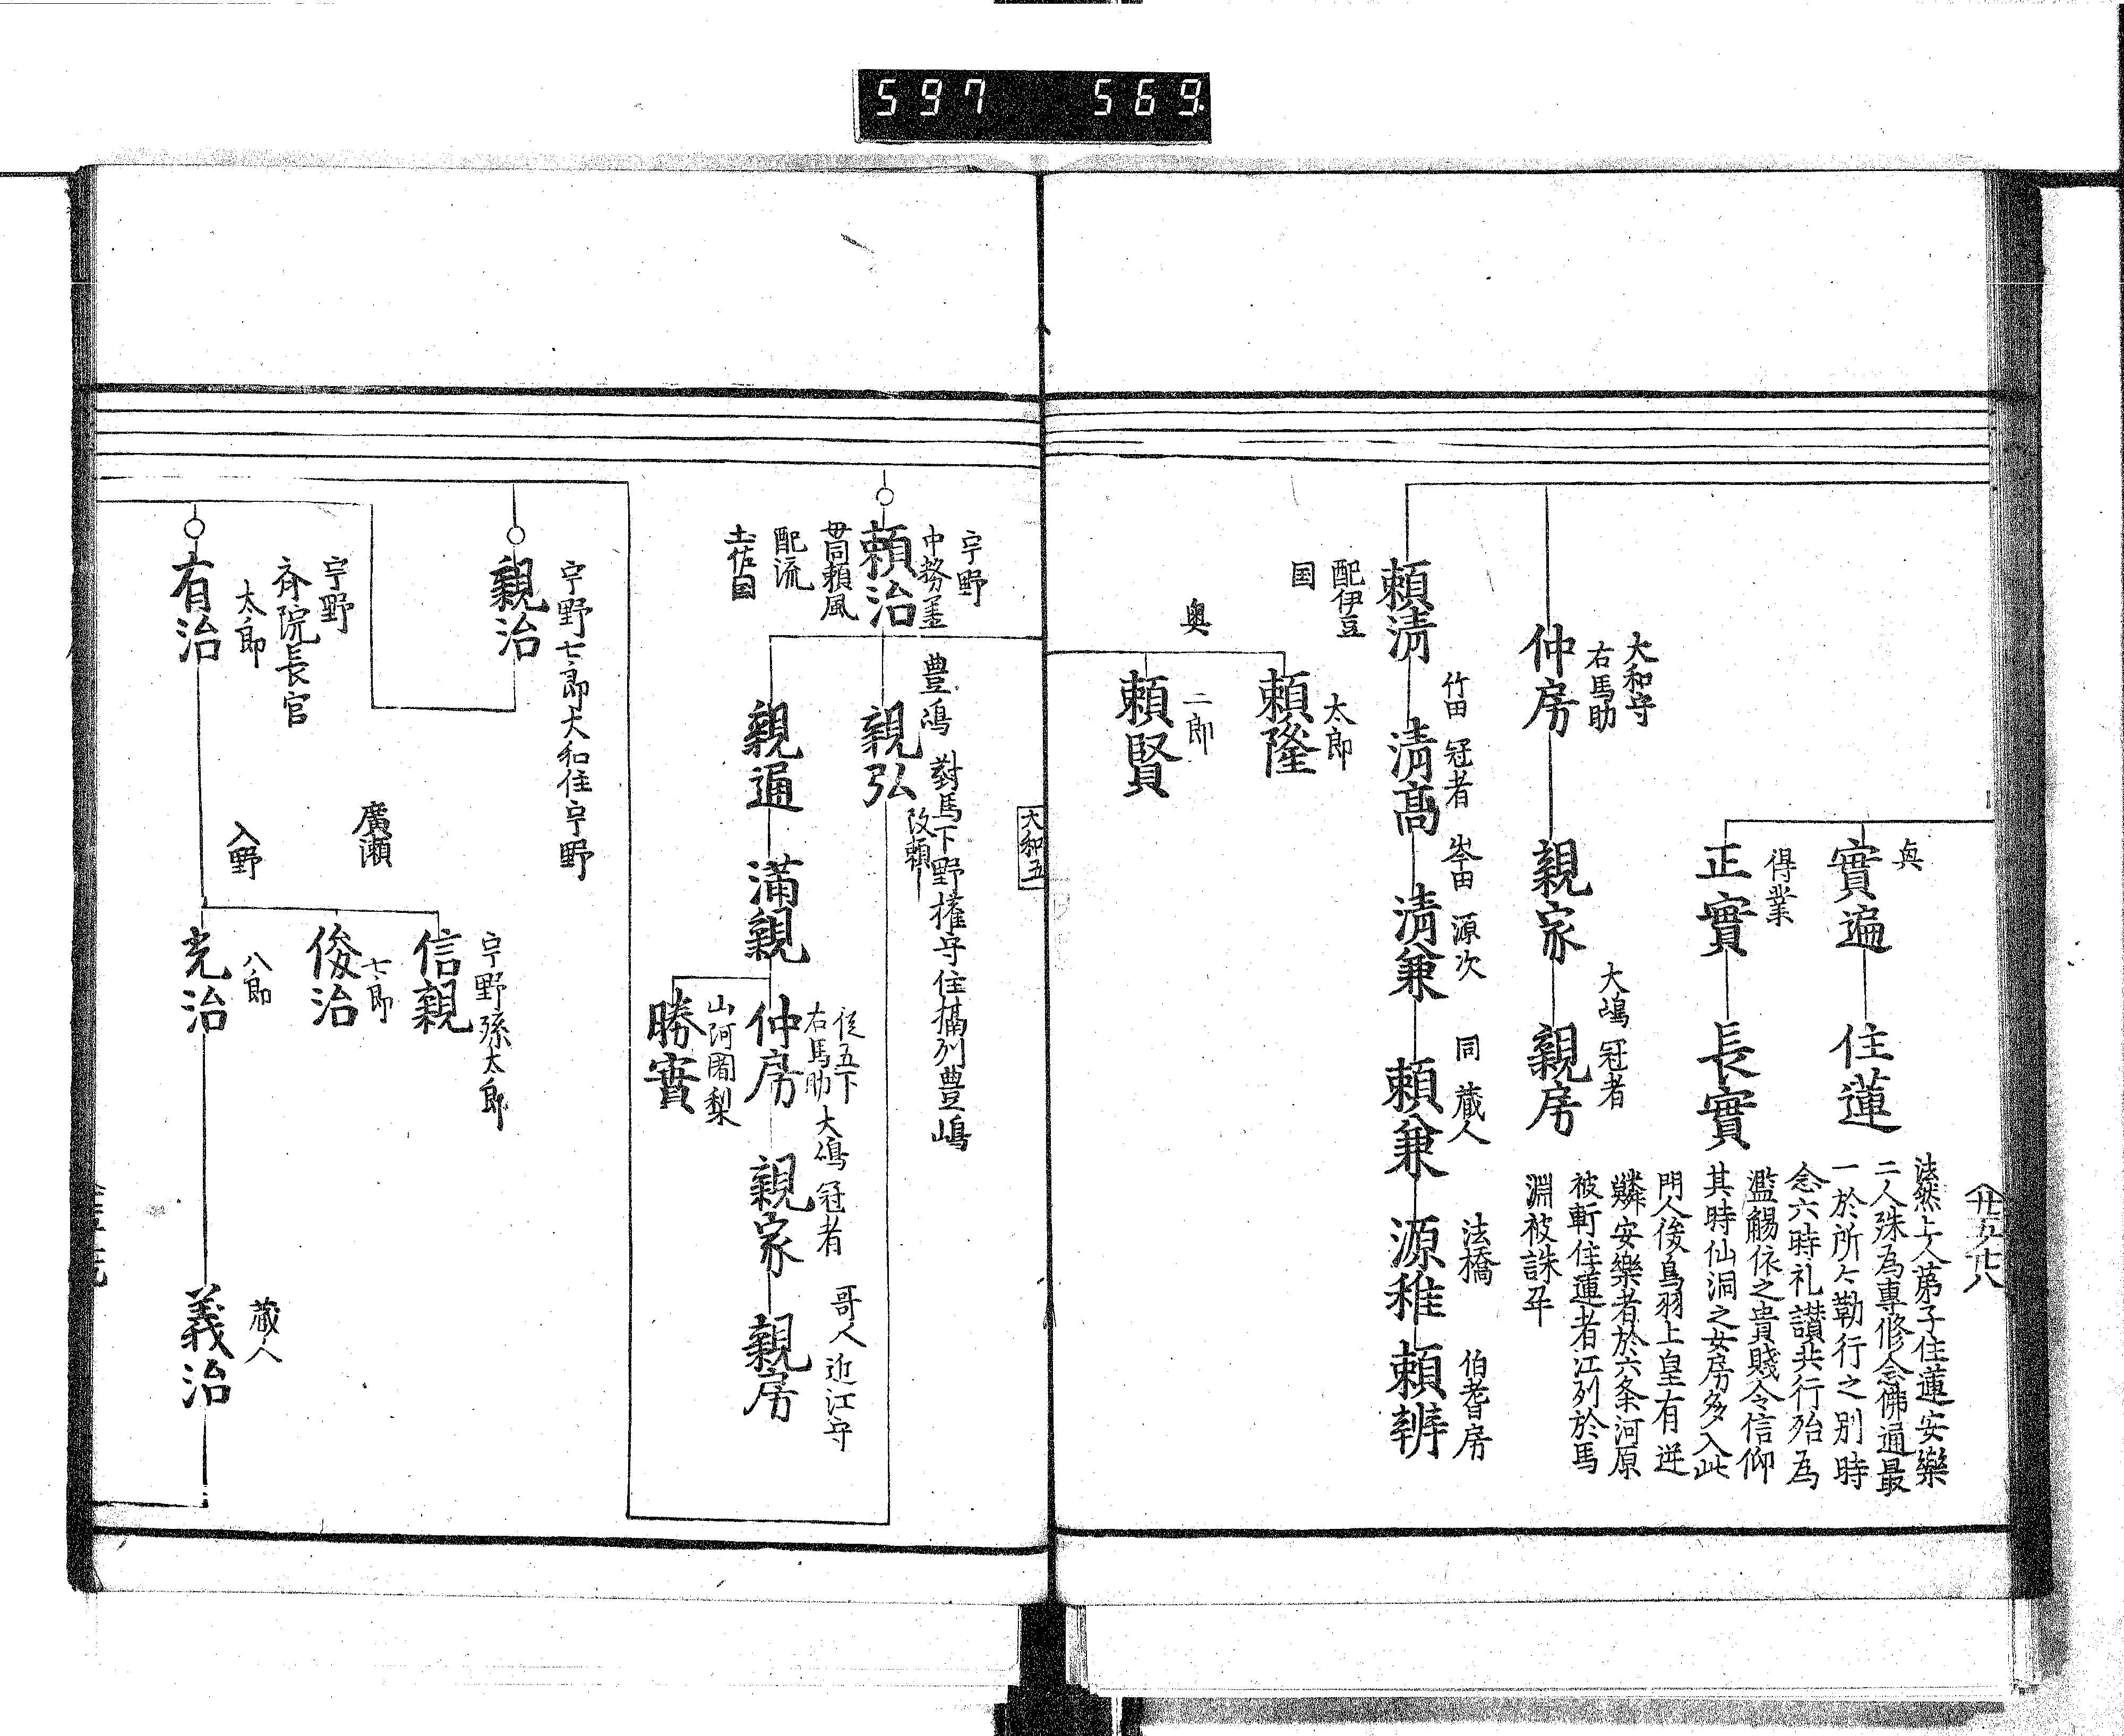 597 569
実遍
住蓮
法然上人弟子住蓮安樂
二人殊為專修念佛通最
一於所々勤行之別時
念六時礼讃共行殆為
濫觴依之貴賤令信仰
其時仙洞之女房多入此
門人後鳥羽上皇有逆
鱗安樂者於六条河原
被斬住蓮者江列於馬
淵被誅卒
得業
正實
長實
大和守
右馬助
仲房
親家
大嶋冠者
親房
頼清
配伊豆
国
竹田冠者
清高
岑田源次
清兼
同蔵人
頼兼
法橋
源稚
伯耆房
頼辨
太郎
頼隆
奥
二郎
頼賢
大和五
宇野
中務丞
頼治
毋同頼風
配流
土佐国
豊嶋
對馬下野權守住摂列豊嶋
改頼
親弘
親遍
満親
従五下
右馬助
仲房
大嶋冠者
親家
哥人近江守
親房
山阿闍梨
勝實
宇野七郎大和住宇野
親治
宇野
斉院長官
太郎
有治
宇野孫太郎
信親
廣瀬
七郎
俊治
入野
八郎
光治
蔵人
義治